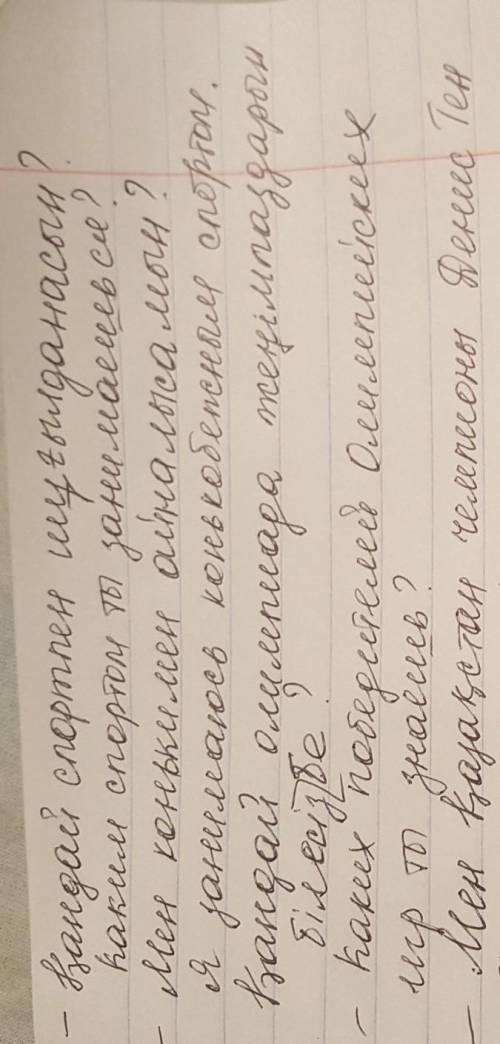 - Қандай спортпен шұғылданасың?
каким спортом ты занимаешься?
- Мен конькимен айналысамын?
Я занимаюсь конькобежным спортом.
Қандай олимпиада жеңімпаздарын
білесіз бе?
- каких победителей Олимпийских
игр ты знаешь?
- Мен Қазақстан чемпионы Денис Тен